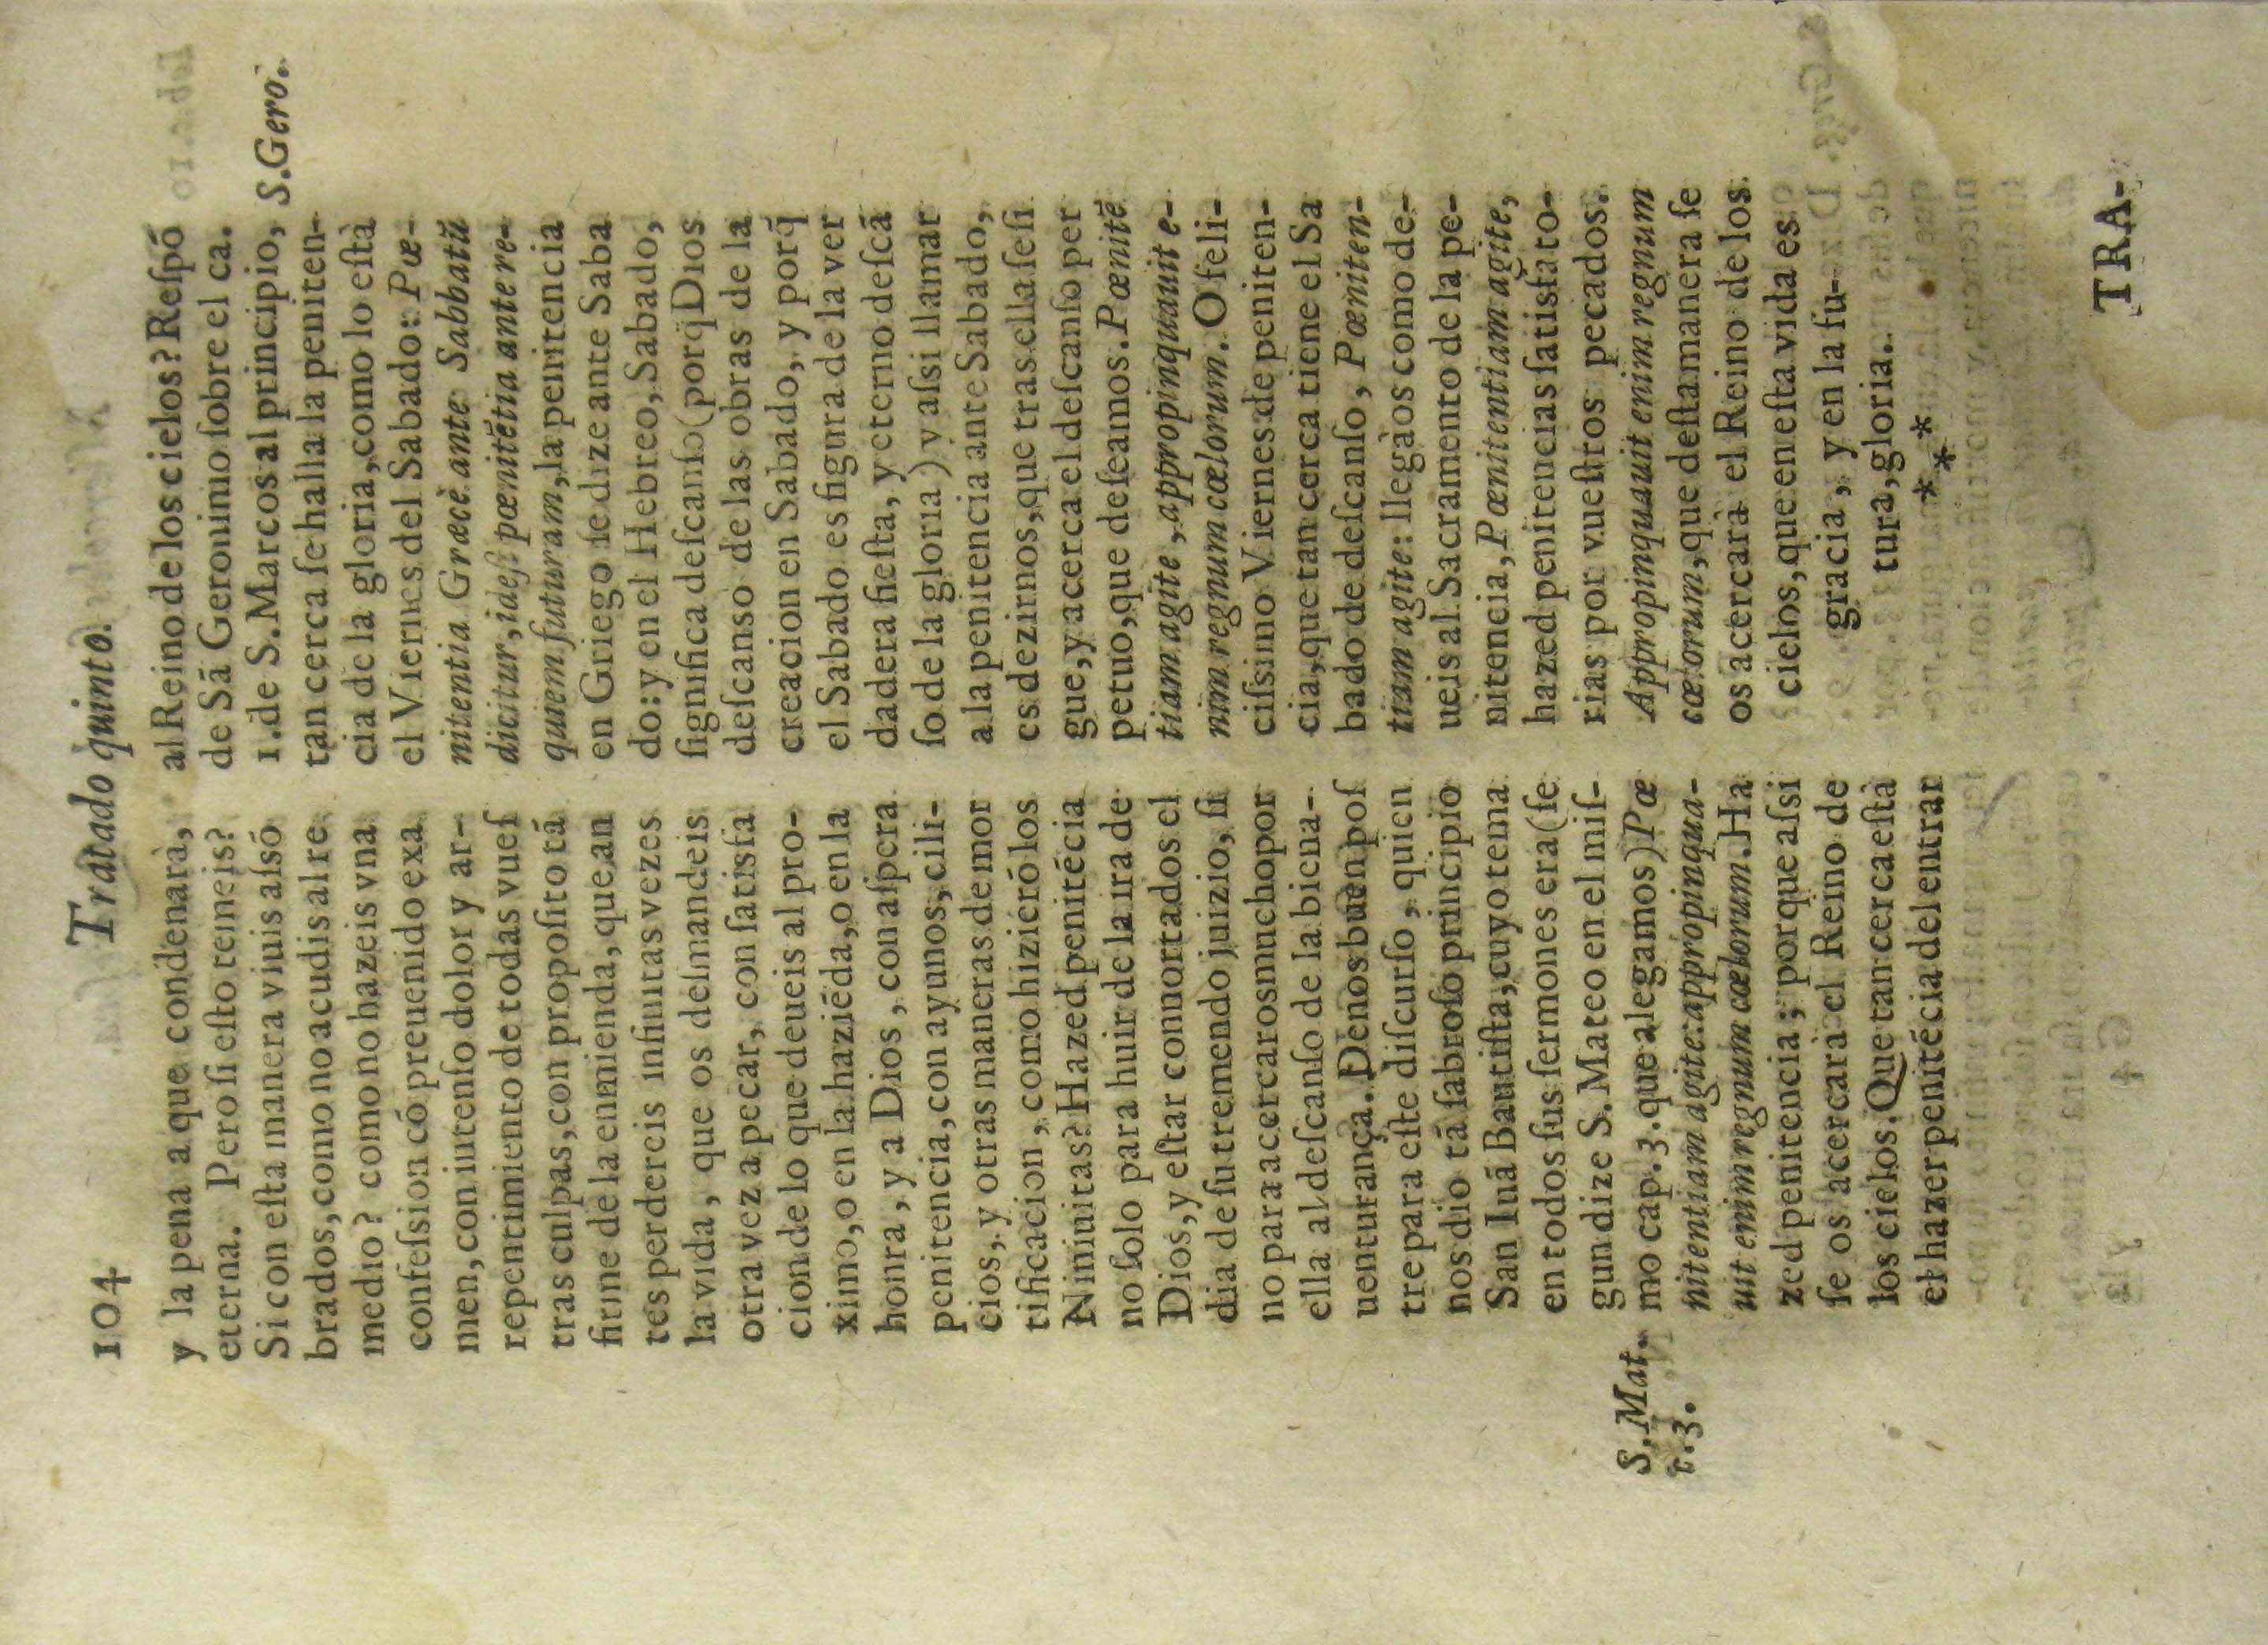 104 Tratado quinto.
y la pena a que condenarà,
eterna. Pero ſi eſto temeis?
Si con eſta manera viuis aſsō
brados, como no acudis al re
medio? como no hazeis vna
confeſsion cō preuenido exa
men, con intenſo dolor y ar-
repentimiento de todas vueſ
tras culpas, con propoſito tā
firme de la enmienda, que an
tes perdereis infinitas vezes
la vida, que os deſmandeis
otra vez a pecar, con ſatisfa
cion de lo que deueis al pro-
ximo, o en la haziēda, o en la
honra, y a Dios, con aſpera
penitencia, con ayunos, cili-
cios, y otras maneras de mor
tificacion, como hizierō los
Niniuitas? Hazed penitēcia
no ſolo para huir de la ira de
Dios, y eſtar connortados el
dia de ſu tremendo juizio, ſi
no para acercaros mucho por
ella al deſcanſo de la biena-
uenturança. Denos buen poſ
tre para eſte diſcurſo, quien
nos dio tā ſabroſo principio
San Iuā Bautiſta, cuyo tema
en todos ſus ſermones era (ſe
gun dize S. Mateo en el miſ-
mo cap. 3. que alegamos) Pœ
nitentiam agite: appropinqua-
uit enim regnum cœlorum. Ha
zed penitencia; porque aſsi
ſe os acercarà el Reino de
los cielos. Que tan cerca eſtà
el hazer penitēcia del entrar
S. Mat.
c. 3.
al Reino de los cielos? Reſpō
de Sā Geronimo ſobre el ca.
1. de S. Marcos al principio,
tan cerca ſe halla la peniten-
cia de la gloria, como lo eſtà
el Viernes del Sabado: Pœ-
nitentia Græcè ante Sabbatū
dicitur, ideſt pœnitētia ante re-
quiem futuram, la penitencia
en Griego ſe dize ante Saba
do: y en el Hebreo, Sabado,
ſignifica deſcanſo (porq̃ Dios
deſcanso de las obras de la
creacion en Sabado, y porq̃
el Sabado es figura de la ver
dadera fieſta, y eterno deſcā
ſo de la gloria) y aſsi llamar
a la penitencia ante Sabado,
es dezirnos, que tras ella ſe ſi
gue, y acerca el deſcanſo per
petuo, que deſeamos. Pœnitē
tiam agite, appropinquauit e-
nim regnum cœlorum. O feli-
ciſsimo Viernes de peniten-
cia, que tan cerca tiene el Sa
bado de deſcanſo, Pœniten-
tiam agite: llegàos como de-
ueis al Sacramento de la pe-
nitencia, Pœnitentiam agite,
hazed penitencias ſatisfato-
rias por vueſtros pecados.
Appropinquauit enim regnum
cœlorum, que deſta manera ſe
os acercarà el Reino de los
cielos, que en eſta vida es
gracia, y en la fu-
tura, gloria.
* * *
S. Gero.
TRA-